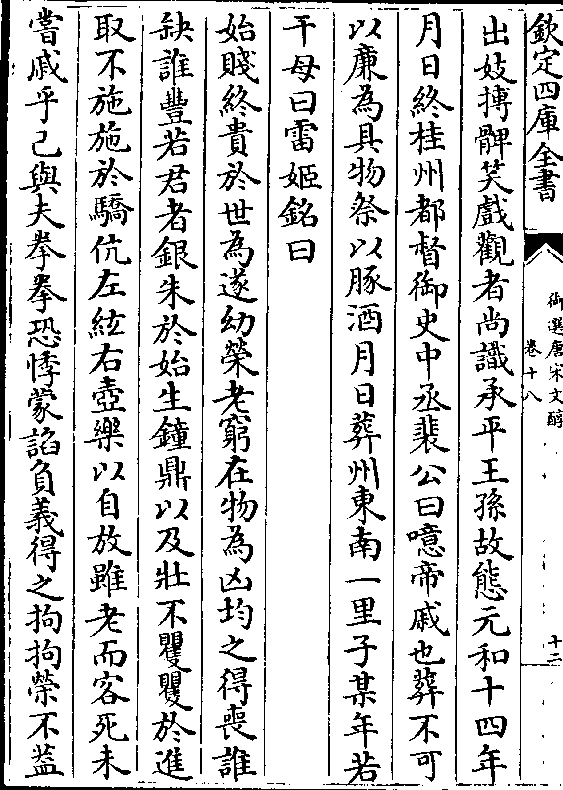 欽定四庫全書
御選唐宋文醇
卷十八
十二
出妓搏髀笑戲觀者尚識承平王孫故態元和十四年
月日終桂州都督御史中丞裴公曰噫帝戚也葬不可
以廉為具物祭以豚酒月日葬州東南一里子某年若
干母曰雷姬銘曰
始賤終貴於世為遂幼榮老窮在物為凶均之得喪誰
缺誰豐若君者銀朱於始生鐘鼎以及壯不矍矍於進
取不施施於驕伉左絃右壺樂以自放雖老而客死未
嘗戚乎己與夫拳拳恐悸蒙諂負義得之拘拘榮不蓋